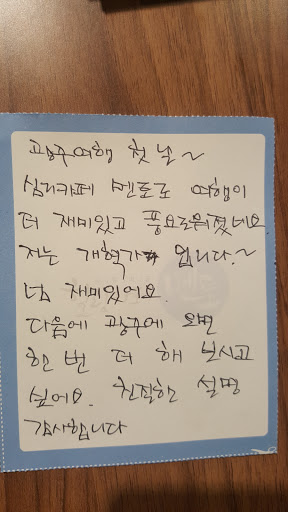 광주여행 첫 날~
심리카페 멘토로 여행이
더 재미있고 풍요로워졌네요
저는 개혁가 입니다.~
넘 재미있어요.
다음에 광주에 오면
한 번 더 해 보시고
싶어요. 친절한 설명
감사합니다